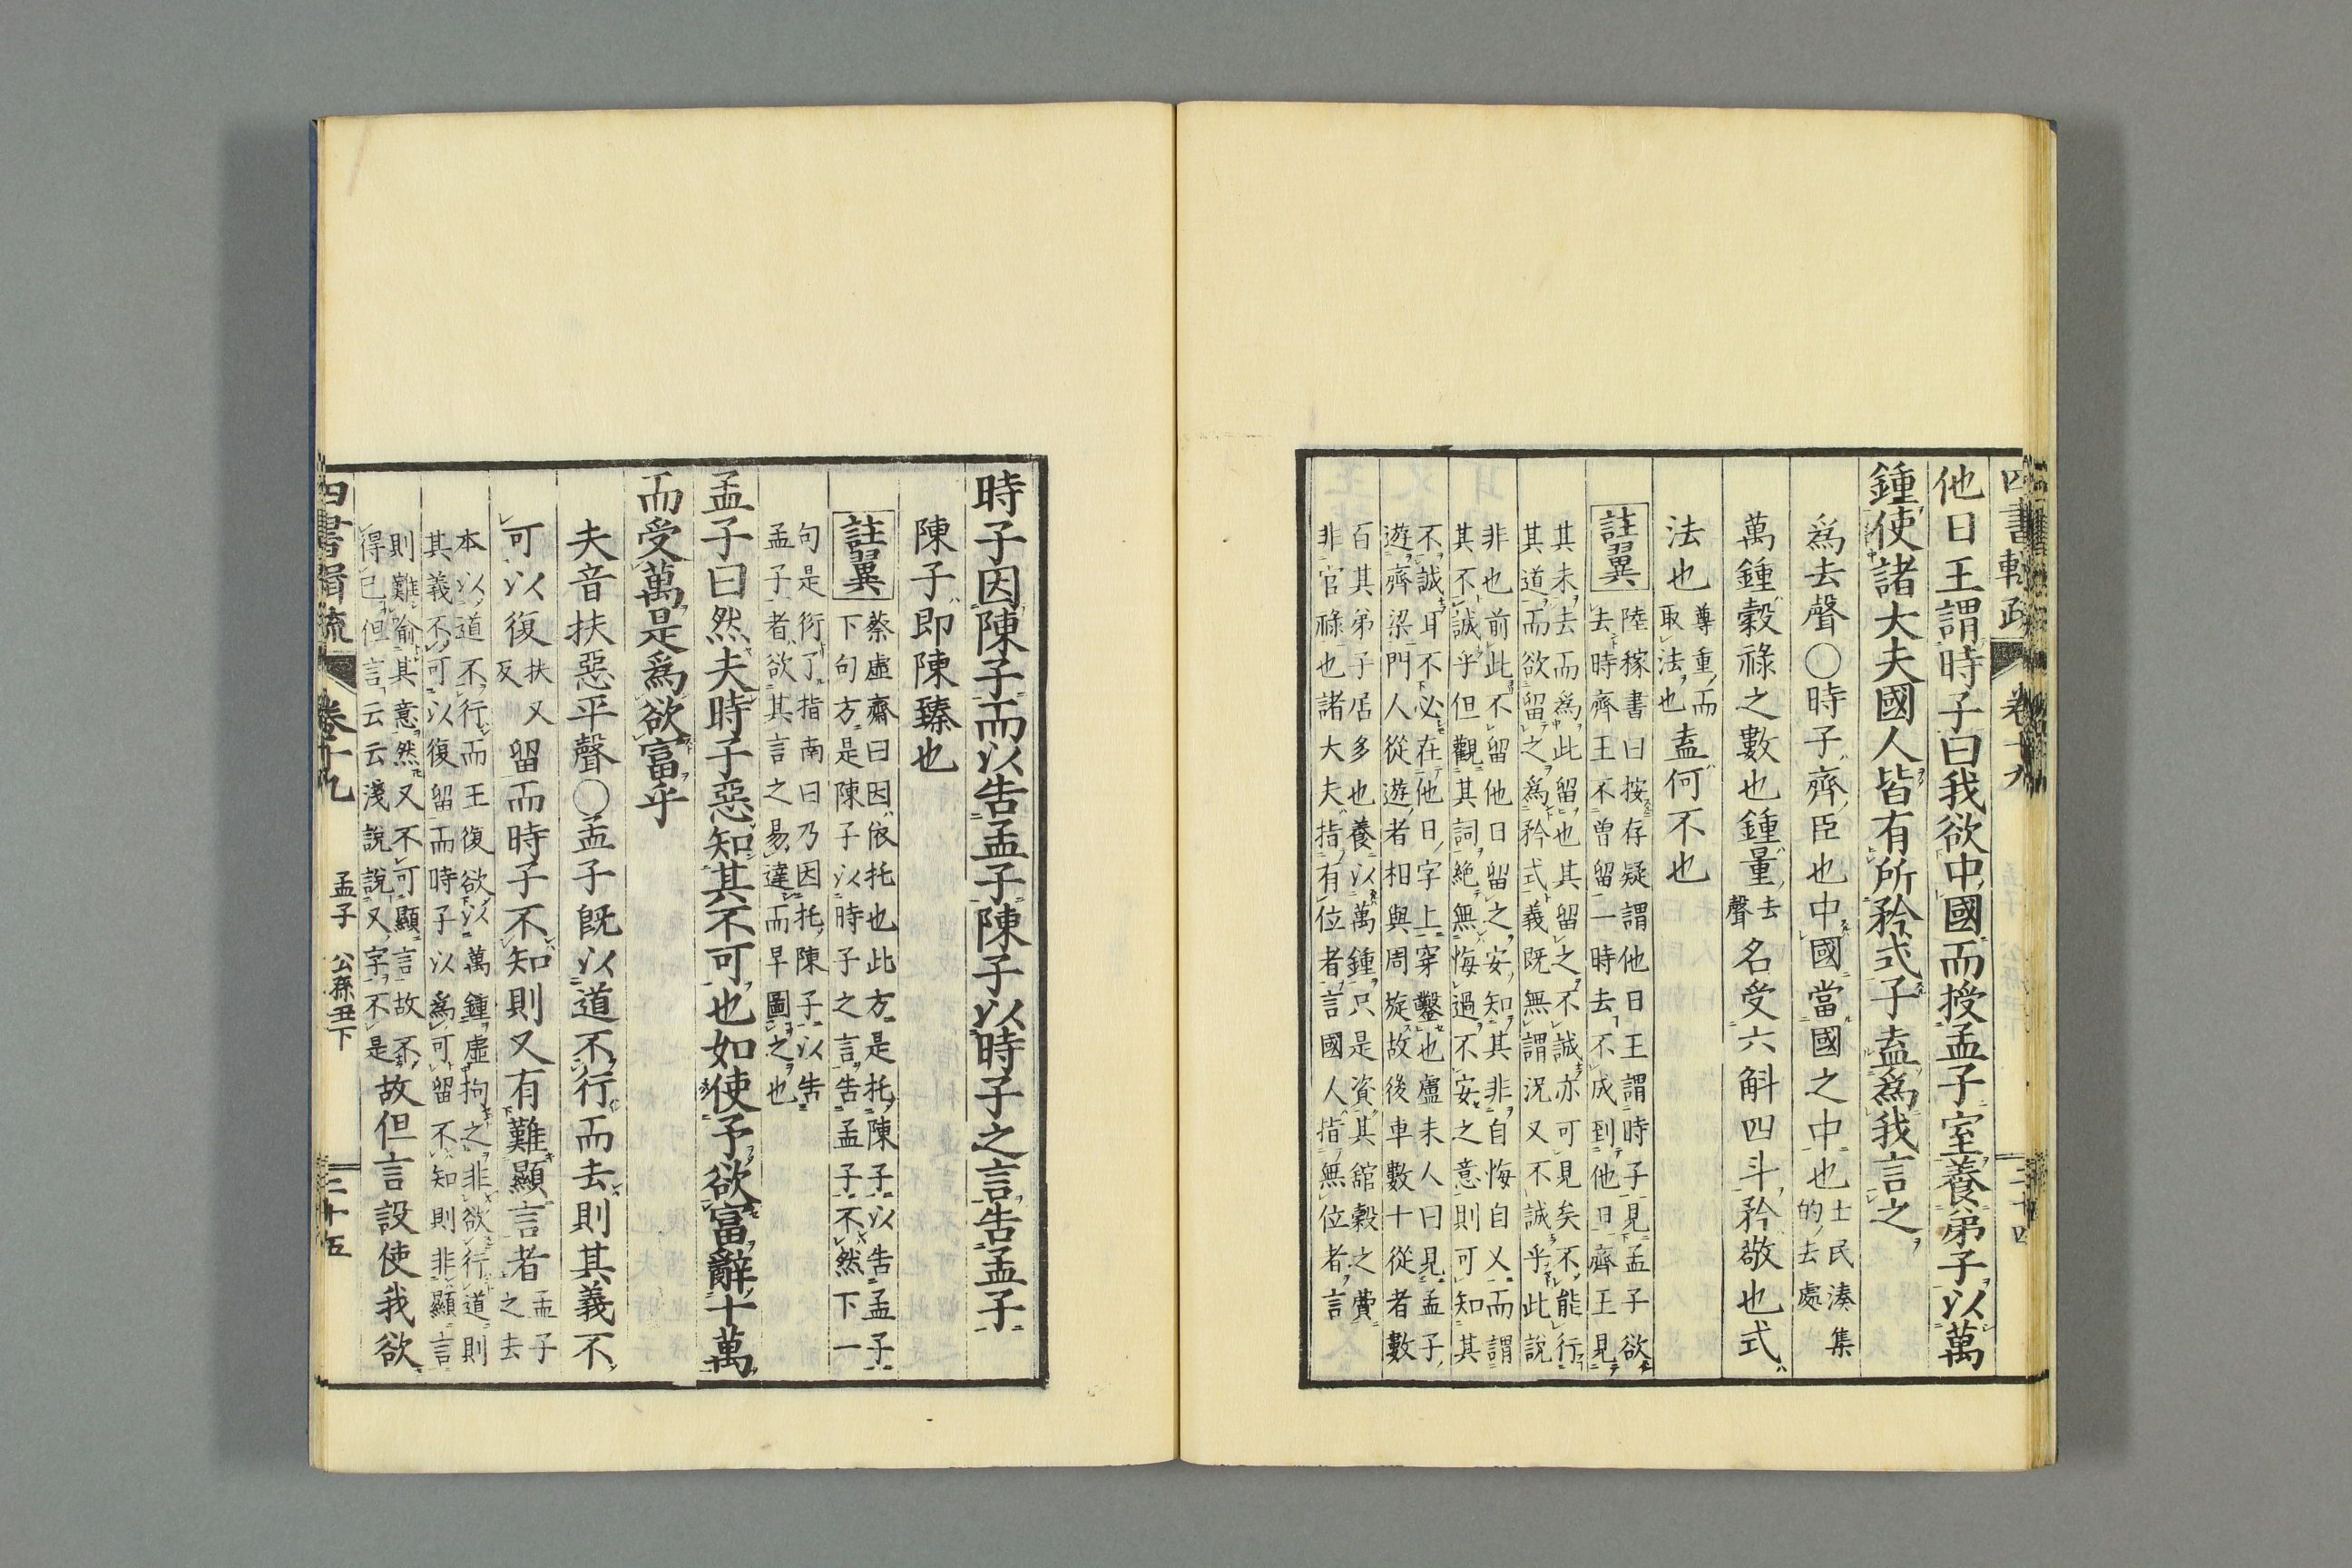 他日王謂時子曰我欲中國而授孟子室養弟子以萬
鍾使諸大夫國人皆有所矜式子盍爲我言之
爲去聲○時子齊臣也中國當國之中也士民湊集
的去處
萬鍾穀祿之數也鍾量去
聲名受六斛四斗矜敬也式
法也尊重而
取法也盍何不也
註翼
陸稼書曰按存疑謂他日王謂時子見孟子欲
去時齊王不曾留一時去不成到他日齊王見
其未去而爲此留也其留之不誠亦可見矣不能行
其道而欲留之爲矜式義既無謂況又不誠乎此說
非也前此不留他日留之安知其非自悔自乂而謂
其不誠乎但觀其詞絕無悔過不安之意則可知其
不誠耳不必在他日字上穿鑿也盧未人曰見孟子
遊齊梁門人從遊者相與周旋故後車數十從者數
百其弟子居多也養以萬鍾只是資其舘穀之費
非官祿也諸大夫指有位者言國人指無位者言
時子因陳子而以告孟子陳子以時子之言告孟子
陳子即陳臻也
註翼
蔡虛齋曰因依托也此方是托陳子以告孟子
下句方是陳子以時子之言告孟子不然下一
句是衍了指南曰乃因托陳子以告
孟子者欲其言之易達而早圖之也
孟子曰然夫時子惡知其不可也如使予欲富辭十萬
而受萬是爲欲富乎
夫音扶惡平聲○孟子既以道不行而去則其義不
可以復扶又
反留而時子不知則又有難顯言者孟子
之去
本以道不行而王復欲以萬鍾虛拘之非欲行道則
其義不可以復留而時子以爲可留不知則非顯言
則難喻其意然又不可顯言故不
得已但言云云淺說說又字不是故但言設使我欲
四書
卷十九
孟子 公孫丑下
三十五